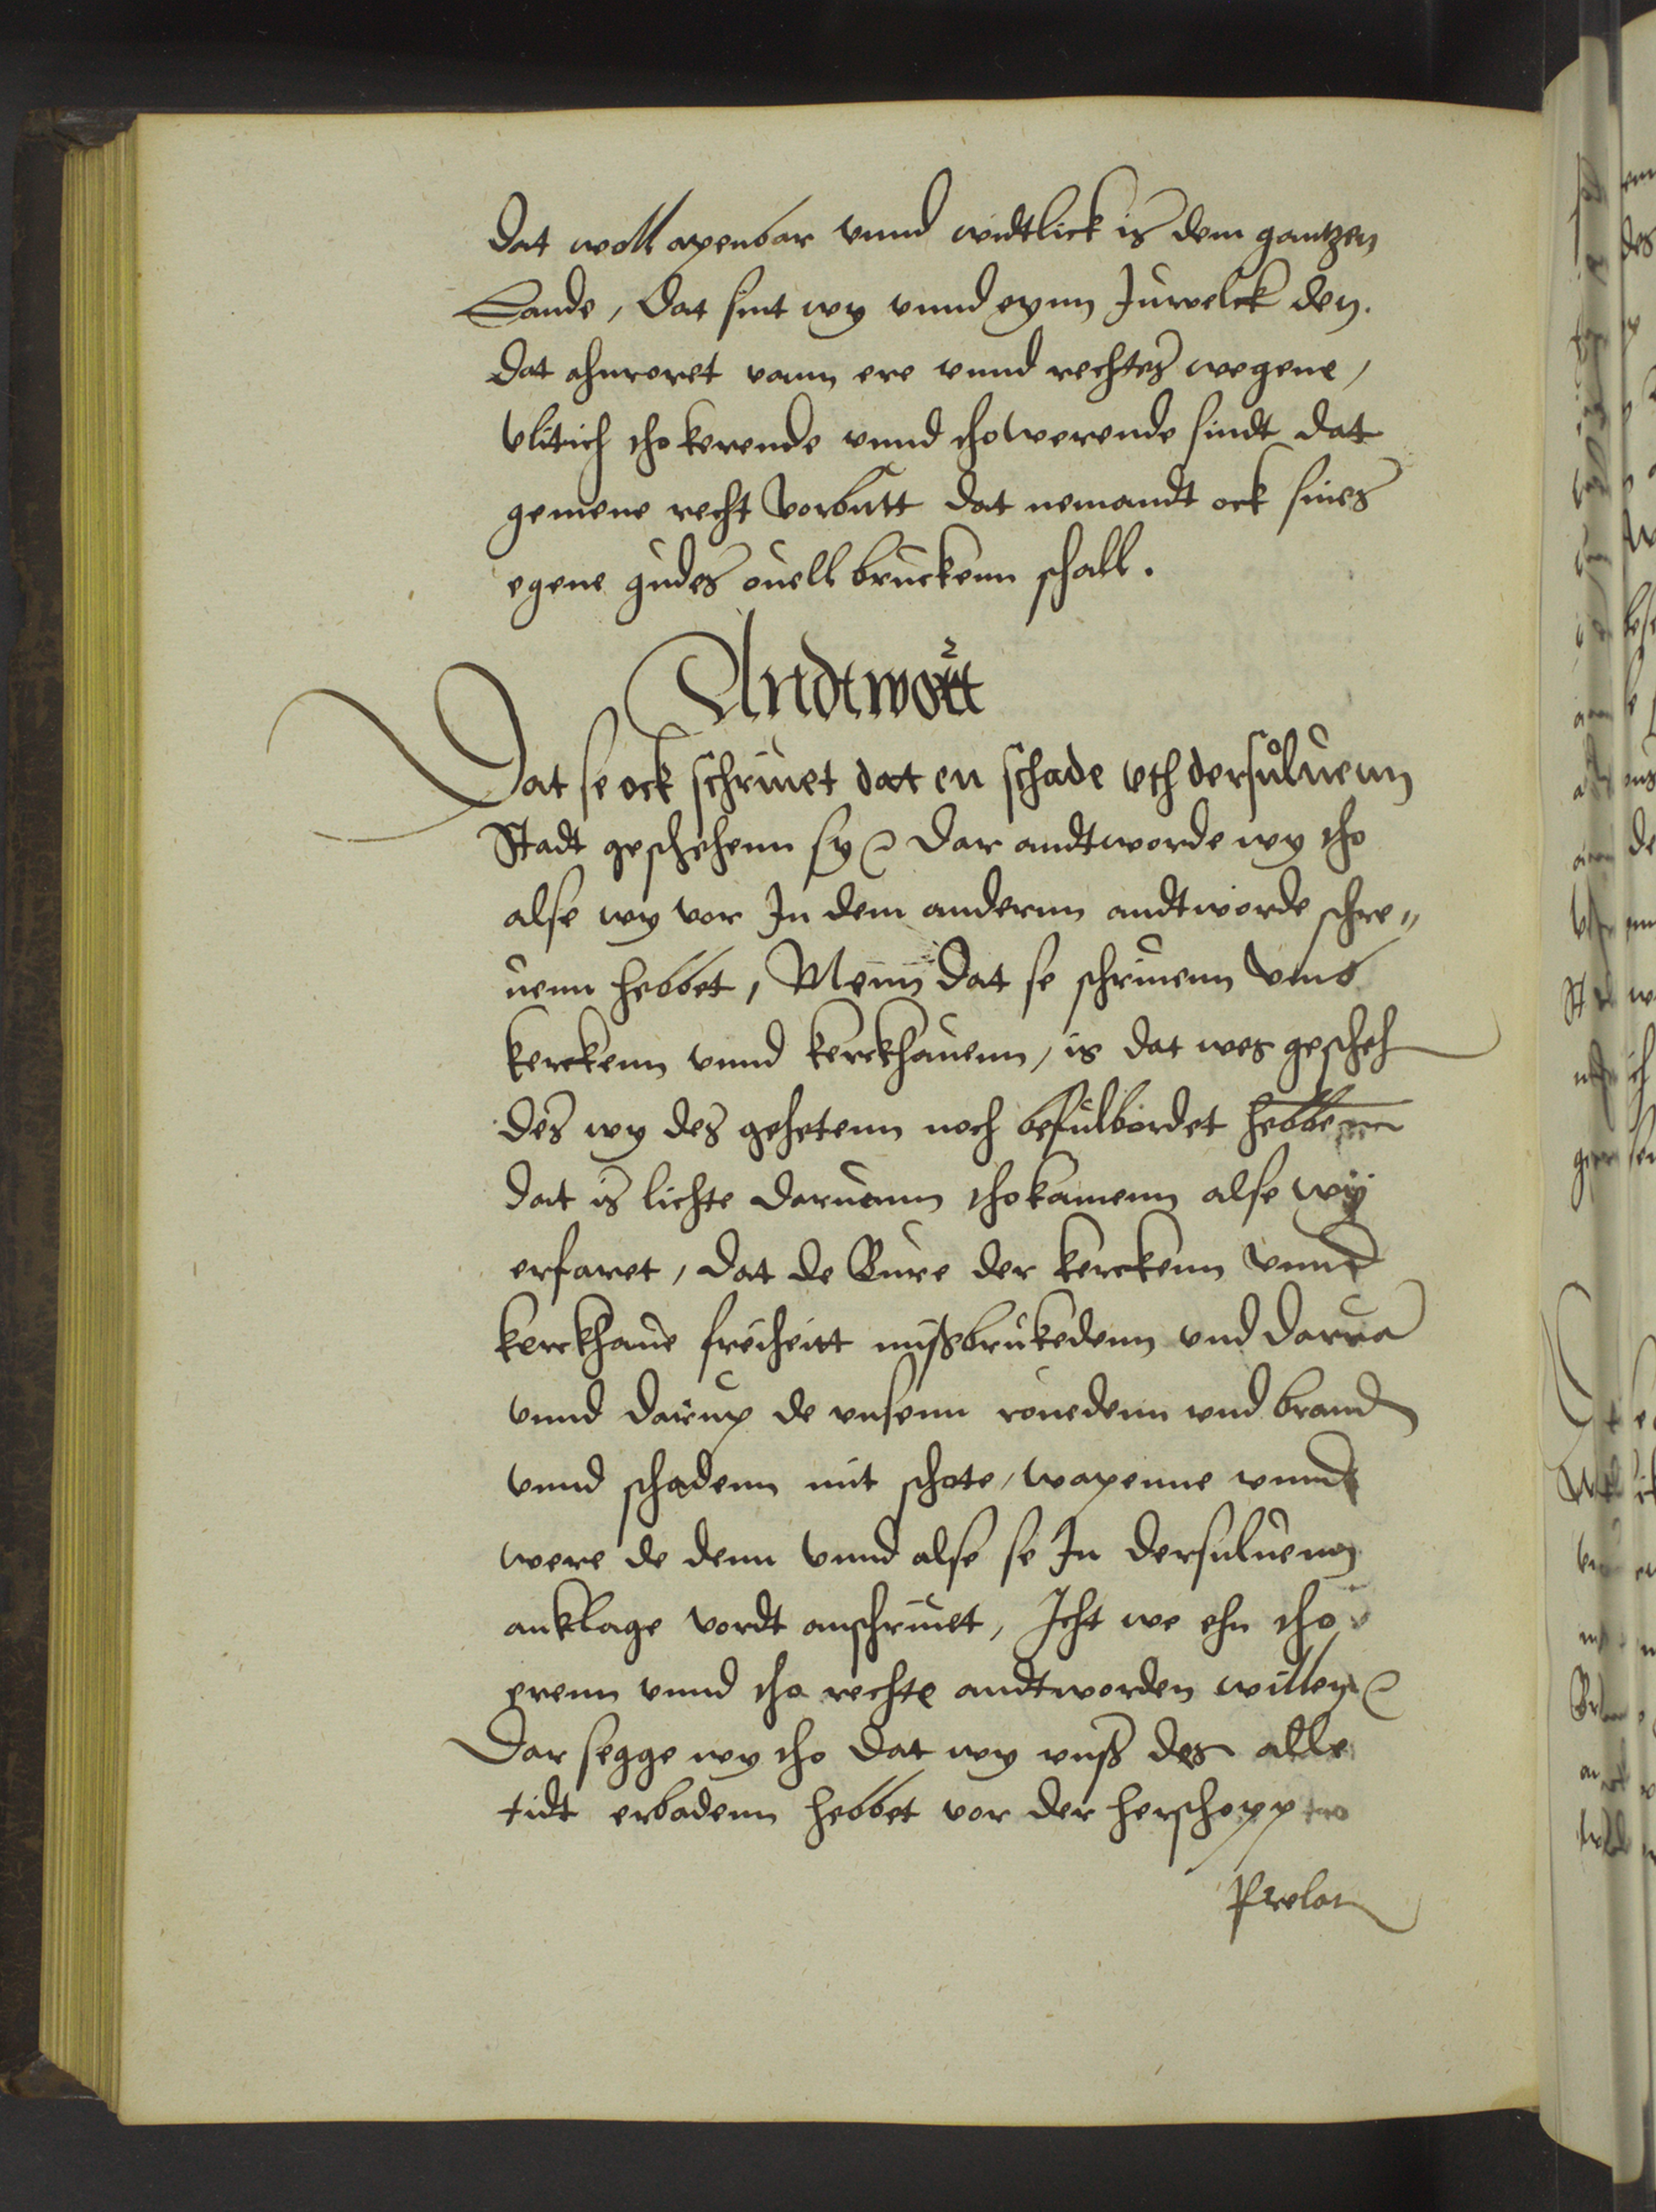 Dat woll apenbar vnnd widtlick is dem gantzen
Lande, Dat sint wy vnnd eynn Juwelck den.
Dat ahnroret vann ere vnnd rechtes wegene,
vlitich tho kerende vnnd tho werende sindt dat
gemene recht vorbutt dat nemandt ock sines
egene gudes ouell bruckenn schall.
Andtwortt
Dat se ock schriuet dat en schade vth dersuluenn
Stadt geschehenn sy Dar andtworde wy tho
alse wy vor In dem andernn andtworde schre„
uenn hebbet, Menn dat se schriuenn vmb
kerckenn vnnd kerckhauenn, is dat wes gescheh
des wy des gehetenn noch befulbordet hebbenn
dat is lichte daruann thokamenn alse wÿ
erfaret, dat de Bure der kerckenn vnnd
kerckhaue freiheitt mißbrukedenn vnd darua
vnnd darup de vnsenn rouedenn vnd brand
vnnd schadenn mit schote, wapenne vnnd
were de denn vnnd alse se In dersuluenn
anklage vordt anschriuet, Icht we ehn tho
erenn vnnd tho rechte andtworden willen
Dar segge wy tho dat wy vnß des alle
tidt erbadenn hebbet vor der herschopp
Prelat